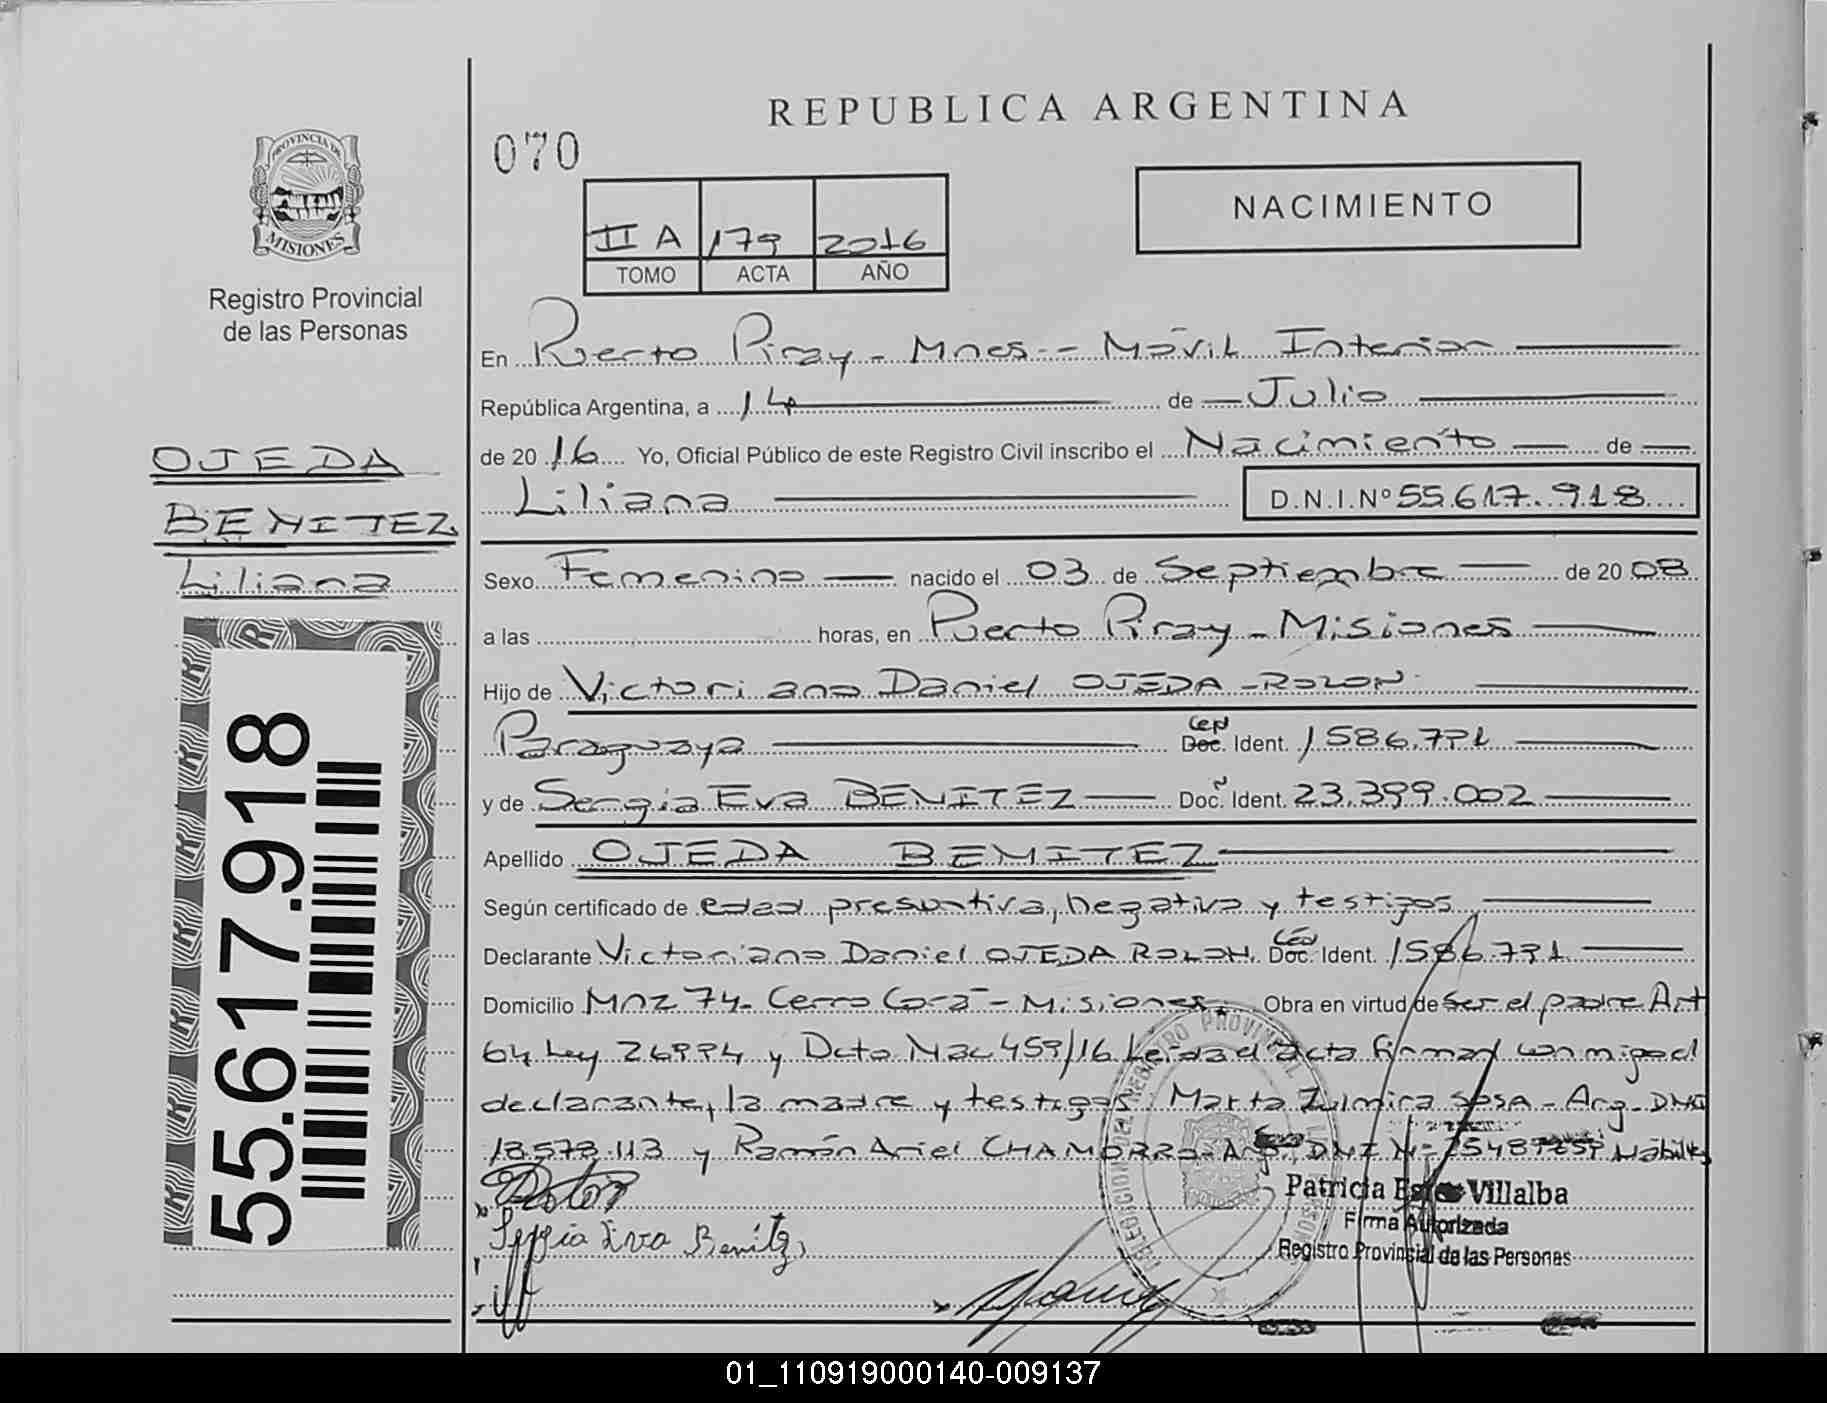 REPUBLICA ARGENTINA
070
NACIMIENTO
II A 179 2016
TOMO ACTA AÑO
PROVINCIA DE MISIONES
Registro Provincial
de las Personas
OJEDA
BENITEZ
Liliana
55.617.918
En Puerto Piray - Mnes - Móvil Interior
República Argentina, a 14 de Julio
de 2016 Yo, Oficial Público de este Registro Civil inscribo el Nacimiento de
Liliana D.N.I.Nº 55.617.918
Sexo Femenino nacido el 03 de Septiembre de 2008
a las horas, en Puerto Piray - Misiones
Hijo de Victoriano Daniel OJEDA - ROLON
Paraguaya Ced Doc. Ident. 1586.791
y de Sergia Eva BENITEZ Doc. Ident. 23.399.002
Apellido OJEDA BENITEZ
Según certificado de edad presuntiva, negativa y testigos
Declarante Victoriano Daniel OJEDA ROLON. Céd Doc. Ident. 1586.791
Domicilio Mnz 74 - Cerro Corá - Misiones Obra en virtud de Ser el padre Art
64 Ley 26994 y Dcto Nac 459/16 Leída el acta firman conmigo el
declarante, la madre y testigos Marta Zulmira SOSA - Arg - DNI
18.578.113 y Ramón Ariel CHAMORRO - Arg. DNI Nº Hábiles
Sergia Eva Benitez
Patricia Villalba
Firma Autorizada
Registro Provincial de las Personas
01_110919000140-009137